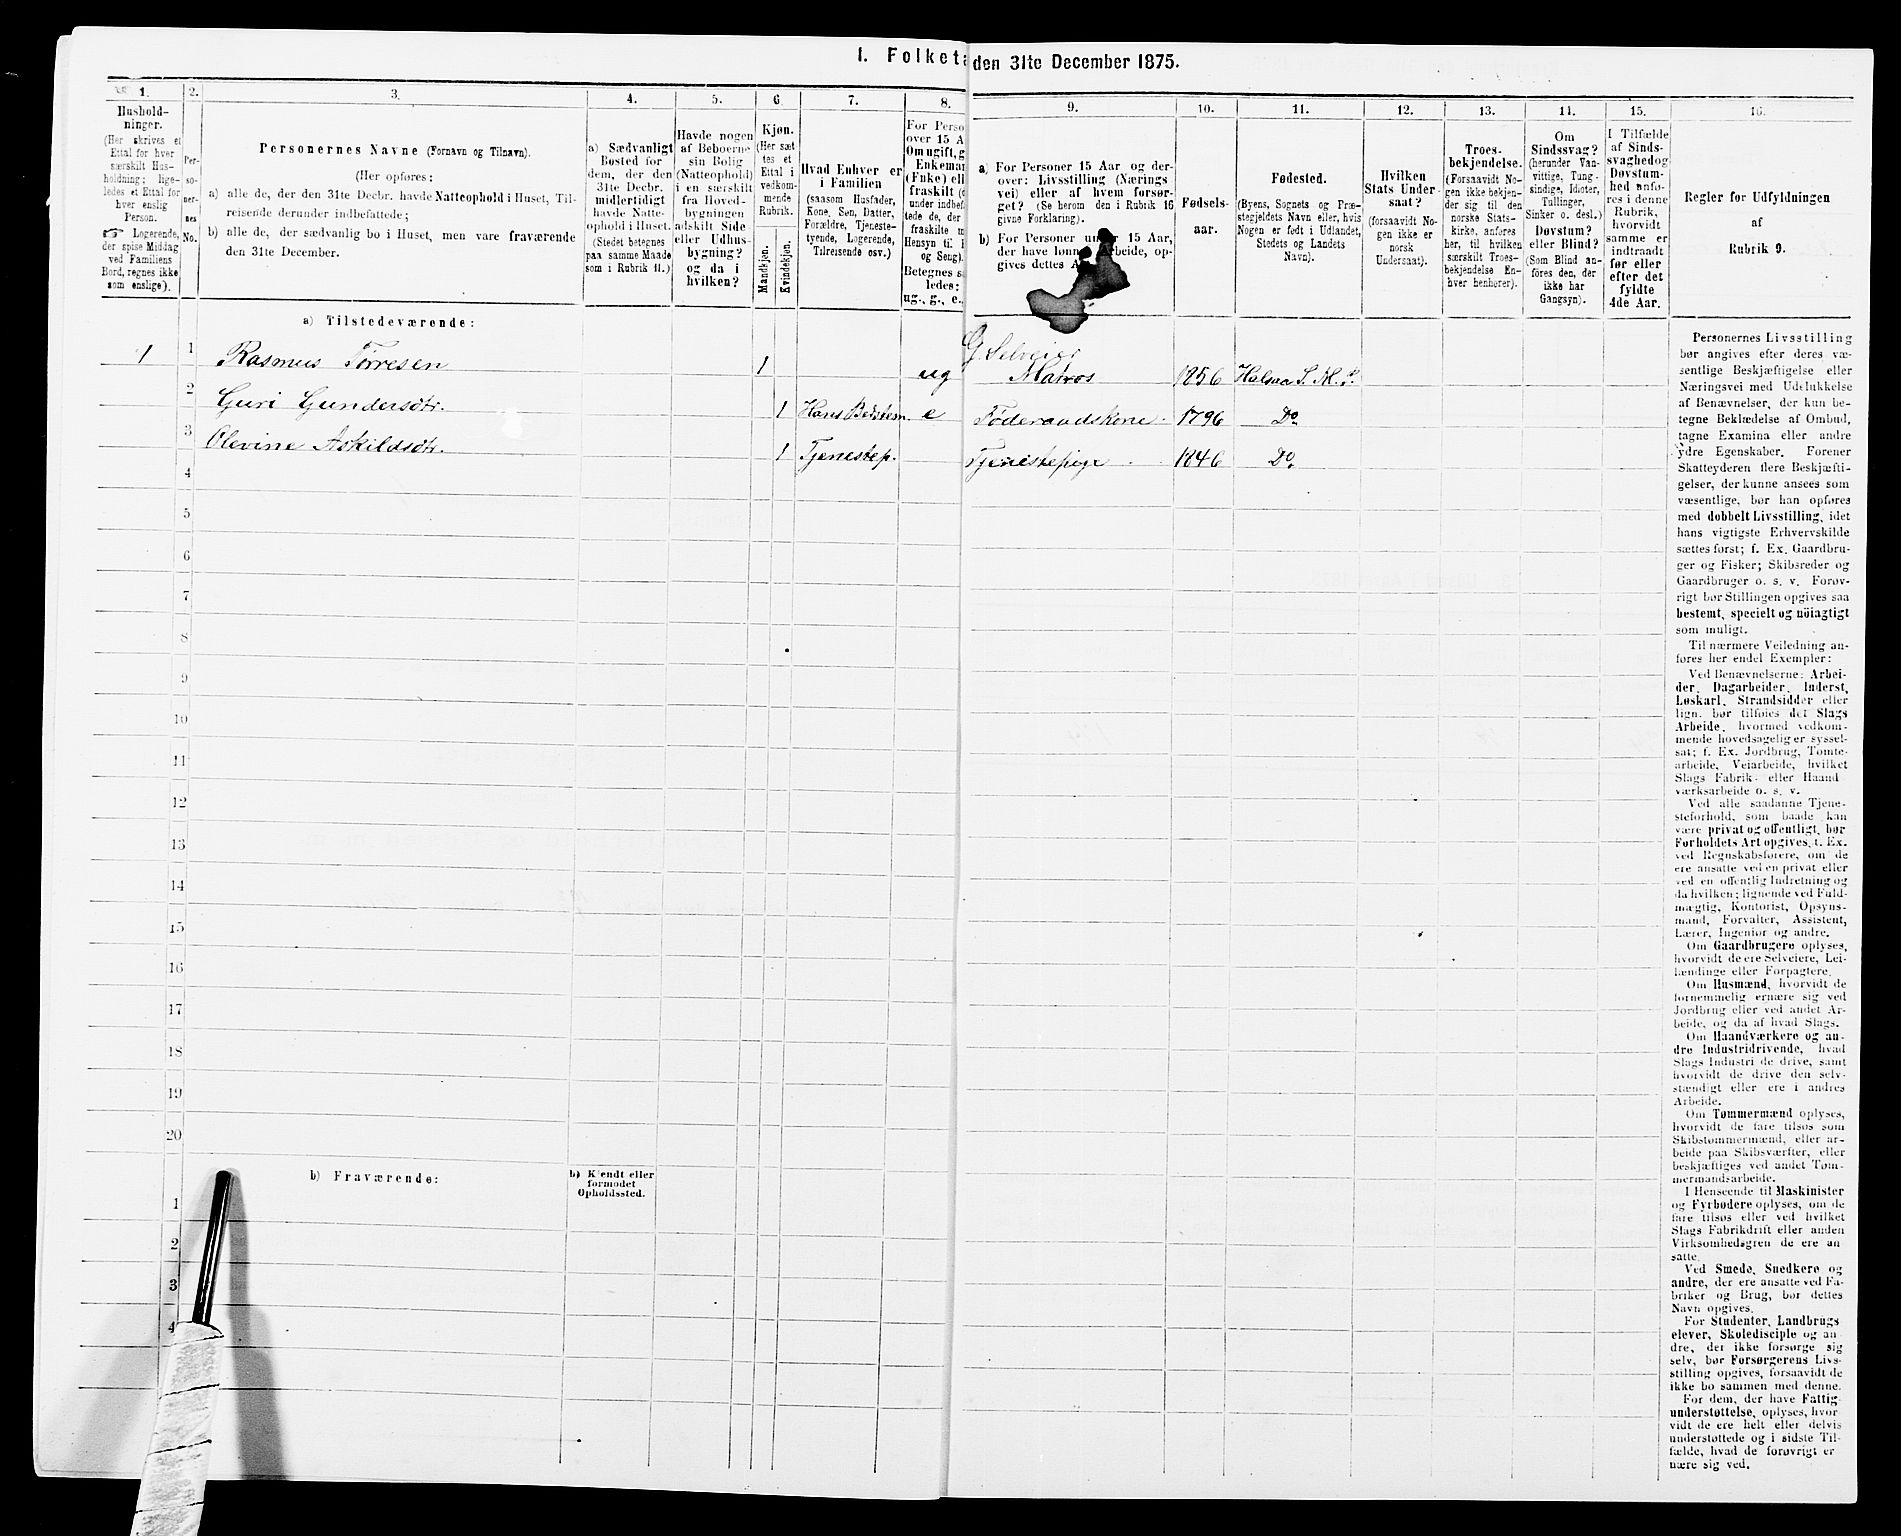 1. Folketæ
den 31te December 1875.
1.
Hushold-
ninger.
(Her skrives et
Ettal for hver
særskilt Hus-
holdning; lige-
ledes et Ettal for
hver enslig
Person.
☞ Logerende,
der spise Middag
ved Familiens
Bord, regnes ikke
som enslige).
2.
Per-
so-
ner-
nes
No.
3.
Personernes Navne (Fornavn og Tilnavn).
(Her opføres:
a) alle de, der den 31te Decbr. havde Natteophold i Huset, Til-
reisende derunder indbefattede;
b) alle de, der sædvanlig bo i Huset, men vare fraværende
den 31te December.
4.
a) Sædvanligt
Bosted for
dem, der den
31te Decbr.
midlertidigt
havde Natte-
ophold i Huset.
(Stedet betegnes
paa samme Maade
som i Rubrik 11.)
5.
Havde nogen
af Beboerne
sin Bolig
(Natteophold)
i en særskilt
fra Hoved-
bygningen
adskilt Side-
eller Udhus-
bygning?
og da i
hvilken?
6.
Kjøn.
(Her sæt-
tes et
Ettal i
vedkom-
mende
Rubrik.
Mandkjøn.
Kvindekjøn.
7.
Hvad Enhver er
i Familien
(saasom Husfader,
Kone, Søn, Datter,
Forældre, Tjeneste-
tyende, Logerende,
Tilreisende osv.)
8.
For Perso
over 15 A
Om ugift, g
Enkeman
(Enke) ell
fraskilt (
under indbef
tede de, der
fraskilte m
Hensyn til
og Seng).
Betegnes s
ledes:
ug., g., e.,
9.
a) For Personer 15 Aar og der-
over: Livsstilling (Nærings
vei) eller af hvem forsør-
get? (Se herom den i Rubrik 16
givne Forklaring).
b) For Personer under 15 Aar,
der have lønnet Arbeide, op-
gives dettes A
10.
Fødsels-
aar.
11.
Fødested.
(Byens, Sognets og Præ-
stegjeldets Navn eller, hvis
Nogen er født i Udlandet,
Stedets og Landets
Navn).
12.
Hvilken
Stats Under-
saat?
(forsaavidt No-
gen ikke er
norsk
Undersaat).
13.
Troes-
bekjendelse.
(Forsaavidt No-
gen ikke bekjen-
der sig til den
norske Stats-
kirke, anføres
her, til hvilken
særskilt Troes-
bekjendelse En-
hver henhører).
14.
Om
Sindssvag?
(herunder Van-
vittige, Tung-
sindige, Idioter,
Tullinger,
Sinker o. desl.)
Døvstum?
eller Blind?
(Som Blind an-
føres den, der
ikke har
Gangsyn).
15.
I Tilfælde
af Sinds-
svaghed og
Døvstum-
hed anfø-
res i denne
Rubrik,
hvorvidt
samme er
indtraadt
før eller
efter det
fyldte
4de Aar.
16.
Regler for Udfyldningen
af
Rubrik 9.
a) Tilstedeværende:
G. Selveier
1 1 Rasmus Tørresen 1 ug Matros 1856 Halsaa S. M. P.
2 Guri Gundersdtr. 1 Hans Bedstem. e Føderaadskone 1796 Do
3 Olevine Askildsdtr. 1 Tjenestep. Tjenestepige 1846 Do
4
5
6
7
8
9
10
11
12
13
14
15
16
17
18
19
20
b) Fraværende:
b) Kjendt eller
formodet
Opholdssted.
1
2
3
4
Personernes Livsstilling
bør angives efter deres væ-
sentlige Beskjæftigelse eller
Næringsvei med Udelukkelse
af Benævnelser, der kun be-
tegne Beklædelse af Ombud,
tagne Examina eller andre
ydre Egenskaber. Forener
Skatteyderen flere Beskjæfti-
gelser, der kunne ansees som
væsentlige, bør han opføres
med dobbelt Livsstilling, idet
hans vigtigste Erhvervskilde
sættes først; f. Ex. Gaardbru-
ger og Fisker; Skibsreder og
Gaardbruger o. s. v. Forøv-
rigt bør Stillingen opgives saa
bestemt, specielt og nöiagtigt
som muligt.
Til nærmere Veiledning an-
føres her endel Exempler:
Ved Benævnelserne: Arbei-
der, Dagarbeider, Inderst,
Løskarl, Strandsidder eller
lign. bør tilføies det Slags
Arbeide, hvormed vedkom-
mende hovedsagelig er syssel-
sat; f. Ex. Jordbrug, Tomte-
arbeide, Veiarbeide, hvilket
Slags Fabrik- eller Haand-
værksarbeide o. s. v.
Ved alle saadanne Tjene-
steforhold, som baade kan
være privat og offentligt, bør
Forholdets Art opgives, f. Ex.
ved Regnskabsførere, om de
ere ansatte ved en privat eller
ved en offentlig Indretning og
da hvilken; lignende ved Fuld-
mægtig, Kontorist, Opsyns-
mand, Forvalter, Assistent,
Lærer, Ingeniør og andre.
Om Gaardbrugere oplyses,
hvorvidt de ere Selveiere, Lei-
lændinge eller Forpagtere.
Om Husmænd, hvorvidt de
fornemmelig ernære sig ved
Jordbrug eller ved andet Ar-
beide, og da af hvad Slags.
Om Haandværkere og an-
dre Industridrivende, hvad
Slags Industri de drive, samt
hvorvidt de drive den selv-
stændigt eller ere i andres
Arbeide.
Om Tømmermænd oplyses,
hvorvidt de fare tilsøs som
Skibstømmermænd, eller ar-
beide paa Skibsværfter, eller
beskjæftiges ved andet Tøm-
mermandsarbeide.
I Henseende til Maskinister
og Fyrbødere oplyses, om de
fare tilsøs eller ved hvilket
Slags Fabrikdrift eller anden
Virksomhedsgren de ere an-
satte.
Ved Smede, Snedkere og
andre, der ere ansatte ved Fa-
briker og Brug, bør dettes
Navn opgives.
For Studenter, Landbrugs-
elever, Skoledisciple og an-
dre, der ikke forsørge sig
selv, bør Forsørgerens Livs-
stilling opgives, forsaavidt de
ikke bo sammen med denne.
For dem, der have Fattig-
understøttelse, oplyses, hvor-
vidt de ere helt eller delvis
understøttede og i sidste Til-
fælde, hvad de forøvrigt er-
nære sig ved.